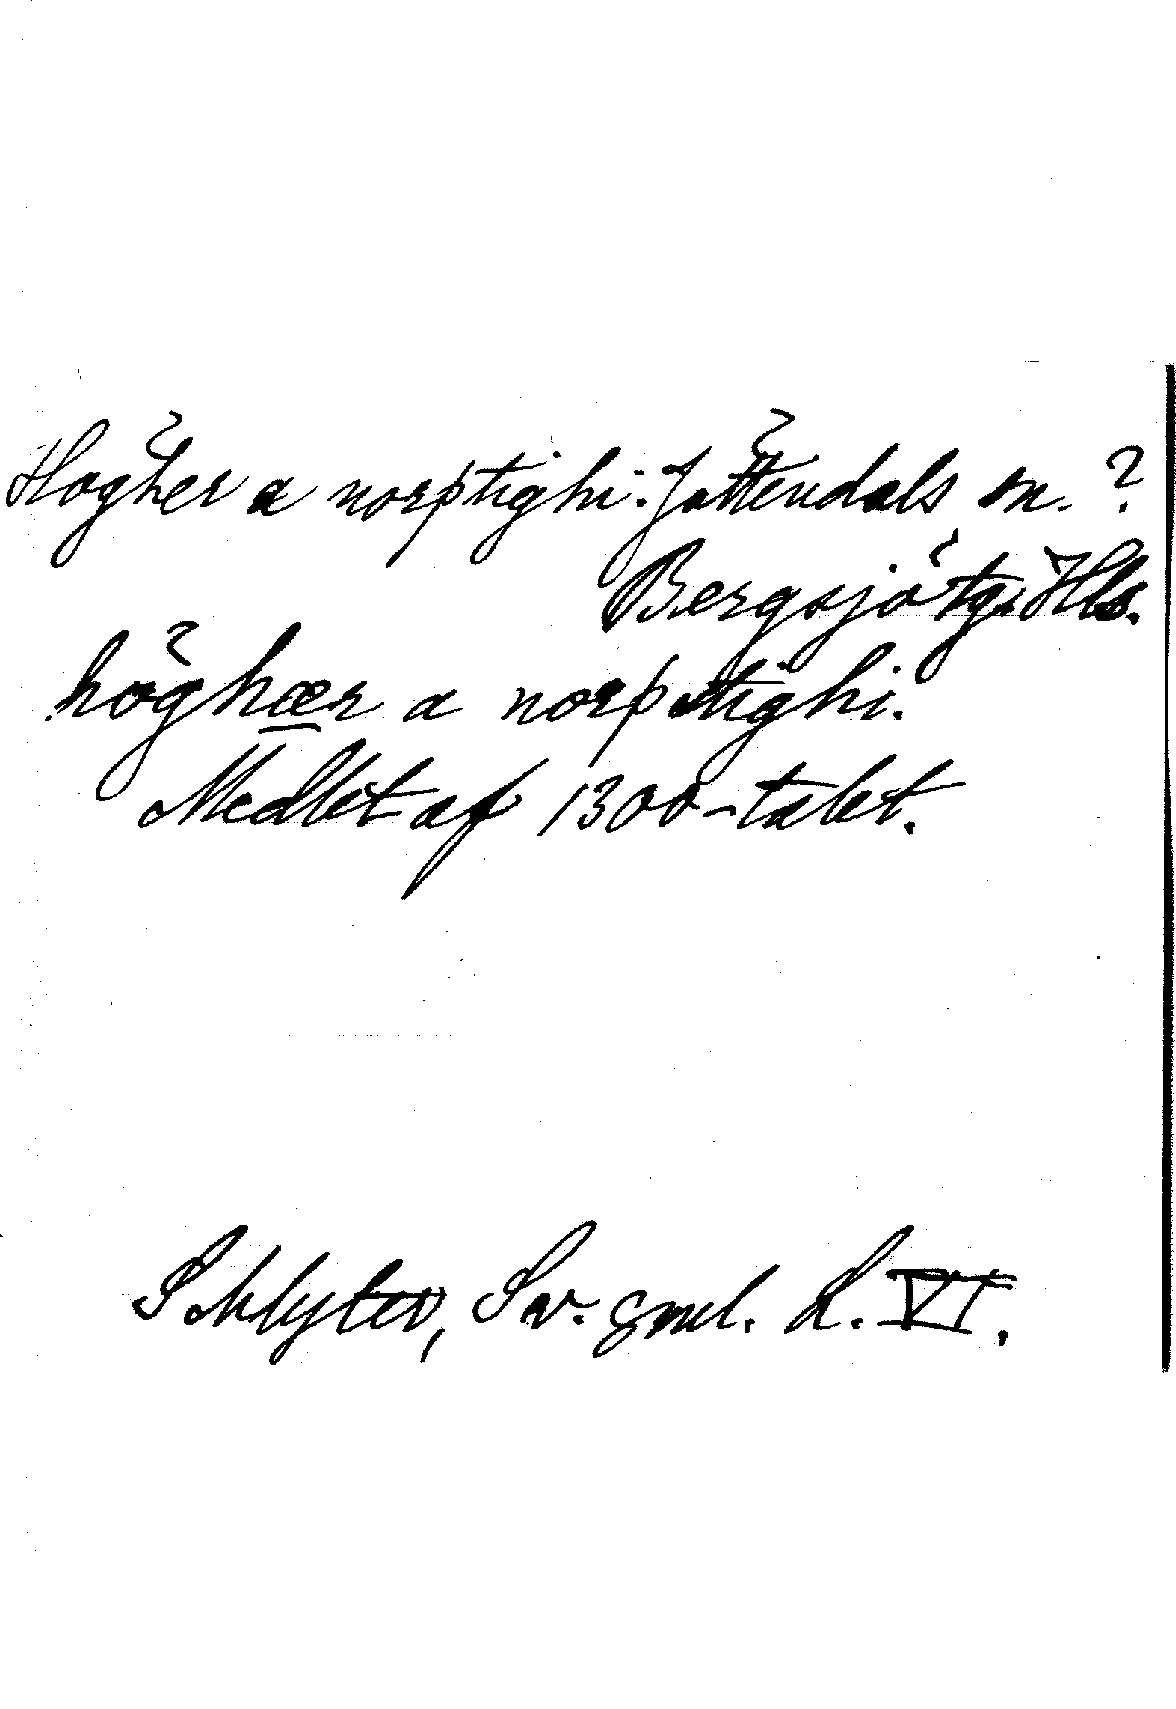 Högher a norþtighi. Jättendals sn. ?
Bergsjö tg. Hls.
höghær a norþ stighi.
Medlet af 1300-talet.
Schlyter, Sv. gml. L. VI.